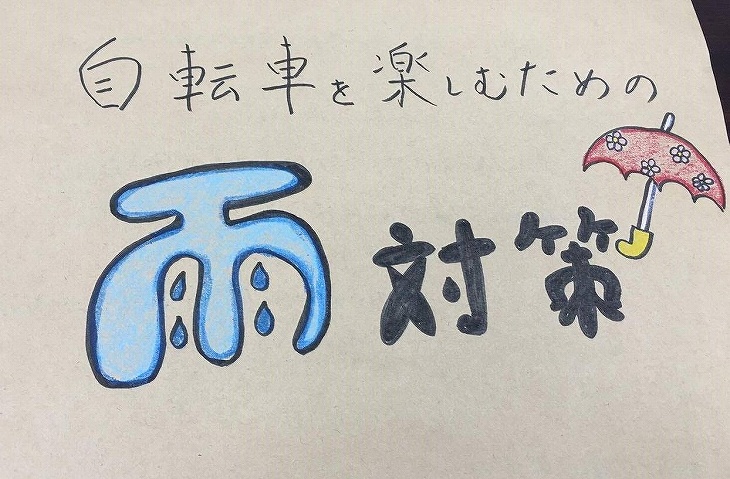 自転車を楽しむための
雨対策